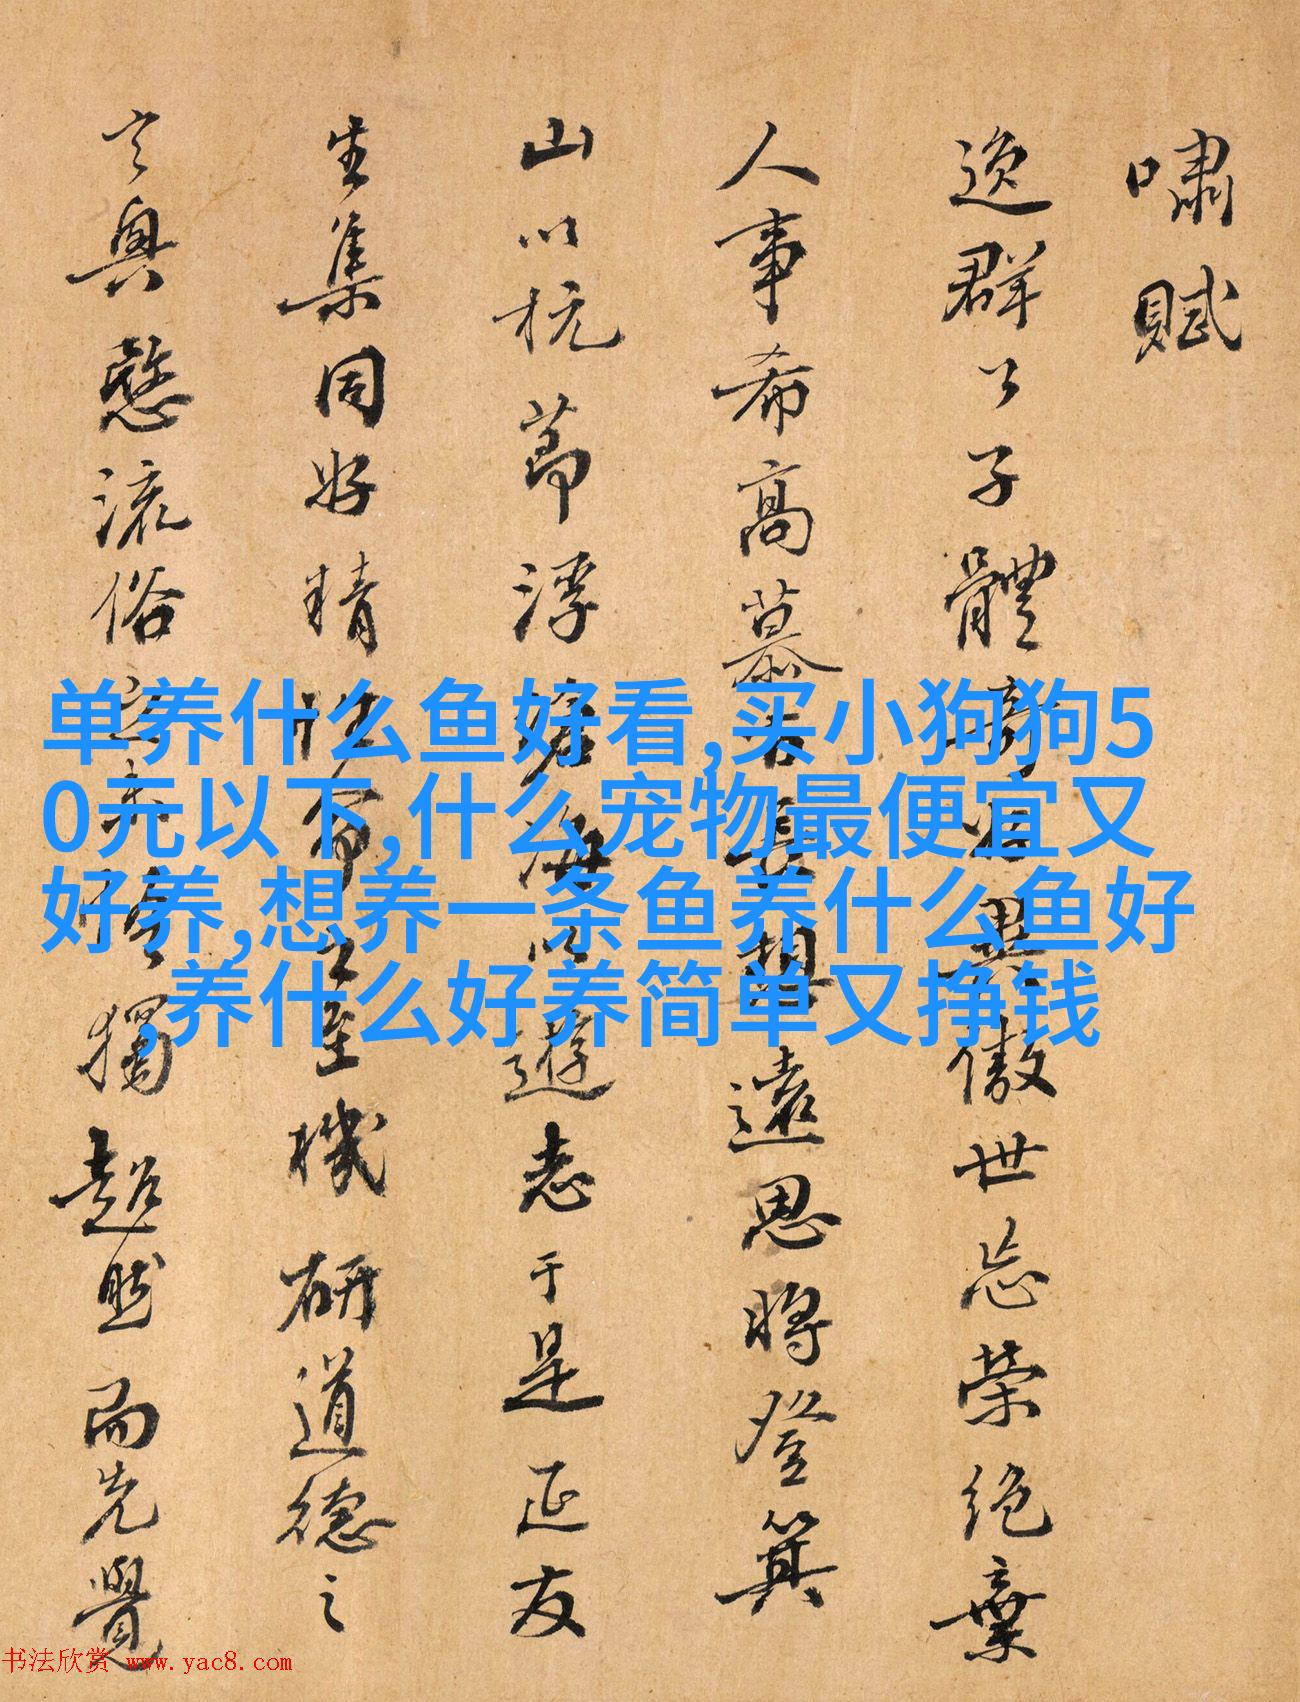 嘯賦
逸群公子體奇好異傲世忘榮絕棄
人事希高慕古長想遠思將登箕
山以抗節浮滄海以遊志于是延友
生集同好精性命之至機研道德之
玄奧愍流俗之未悟獨超然而先覺
单养什么鱼好看,买小狗狗5
0元以下,什么宠物最便宜又
好养,想养一条鱼养什么鱼好
,养什么好养简单又挣钱
书法欣赏 www.yac8.com